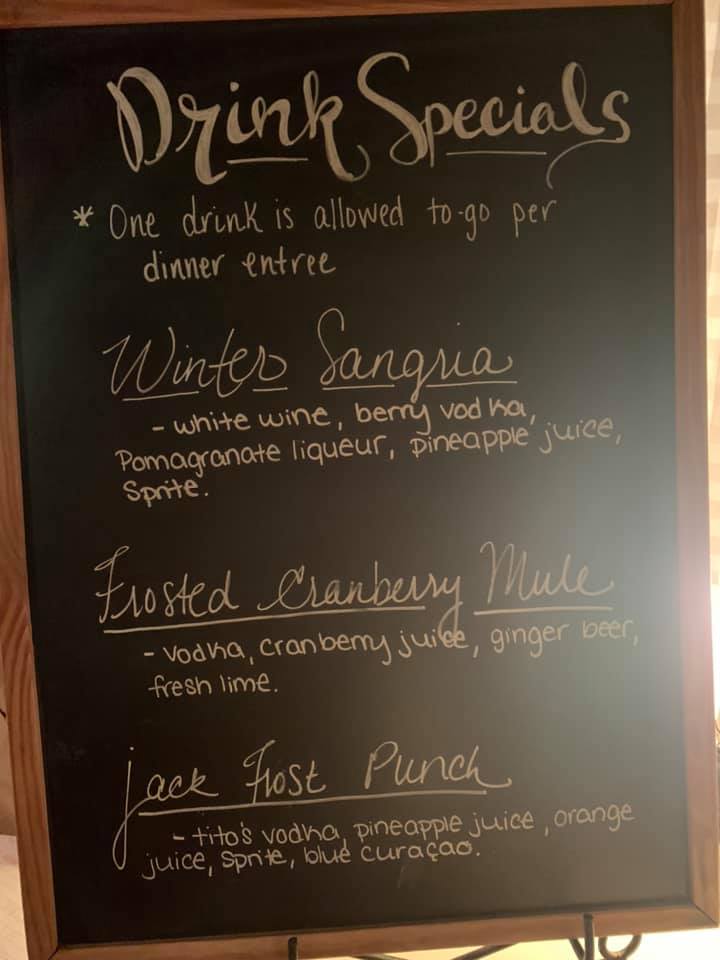 Drink Specials
* One drink is allowed to-go per
dinner entree
Winter Sangria
- white wine, berry vodka,
Pomagranate liqueur, pineapple juice,
Sprite.
Frosted Cranberry Mule
- vodka, cranberry juice, ginger beer,
fresh lime.
Jack Frost Punch
- tito's vodka, pineapple juice, orange
juice, sprite, blue curaçao.